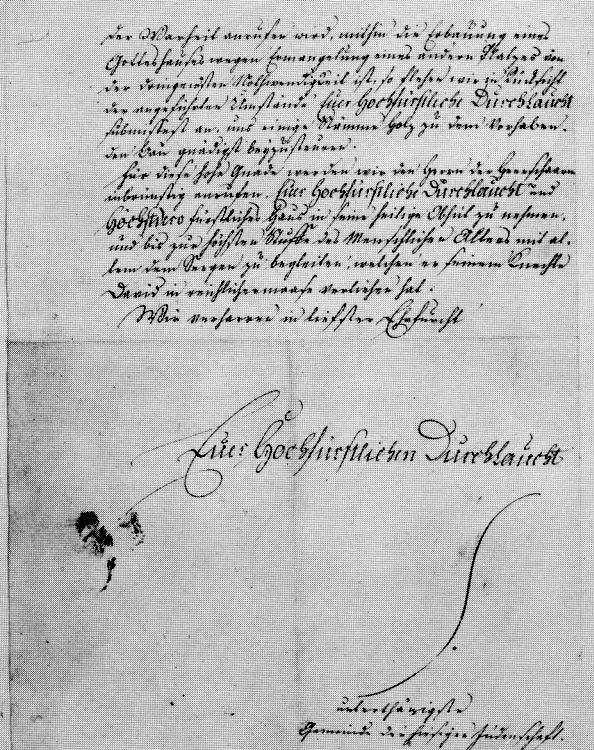 der Warheit anrufen wird, mithin die Erbauung eines
Gotteshauses wegen Ermangelung eines andern Platzes von
der dringensten Nothwendigkeit ist, so flehen wir in Rücksicht
der angeführten Umstände Euer Hochfürstliche Durchlaucht
submissest an, uns einige Stämme Holz zu dem Vorhaben,
den Bau gnädigst beyzusteuren.
Für diese hohe Gnade werden wir den Herrn der Heerschaaren
inbrünstig anrufen, Euer Hochfürstliche Durchlaucht und
Hochdero fürstliches Haus in seine heilige Obhut zu nehmen,
und bis zur höchsten Stuffe des Menschlichen Alters mit al-
lem dem Seegen zu begleiten, welchen er seinem Knechte
David in reichlichermaase verliehen hat.
Wir verharren in tiefster Ehrfurcht
Euer Hochfürstlichen Durchlaucht
unterthänigste
Gemeinde der hiesigen Judenschaft.